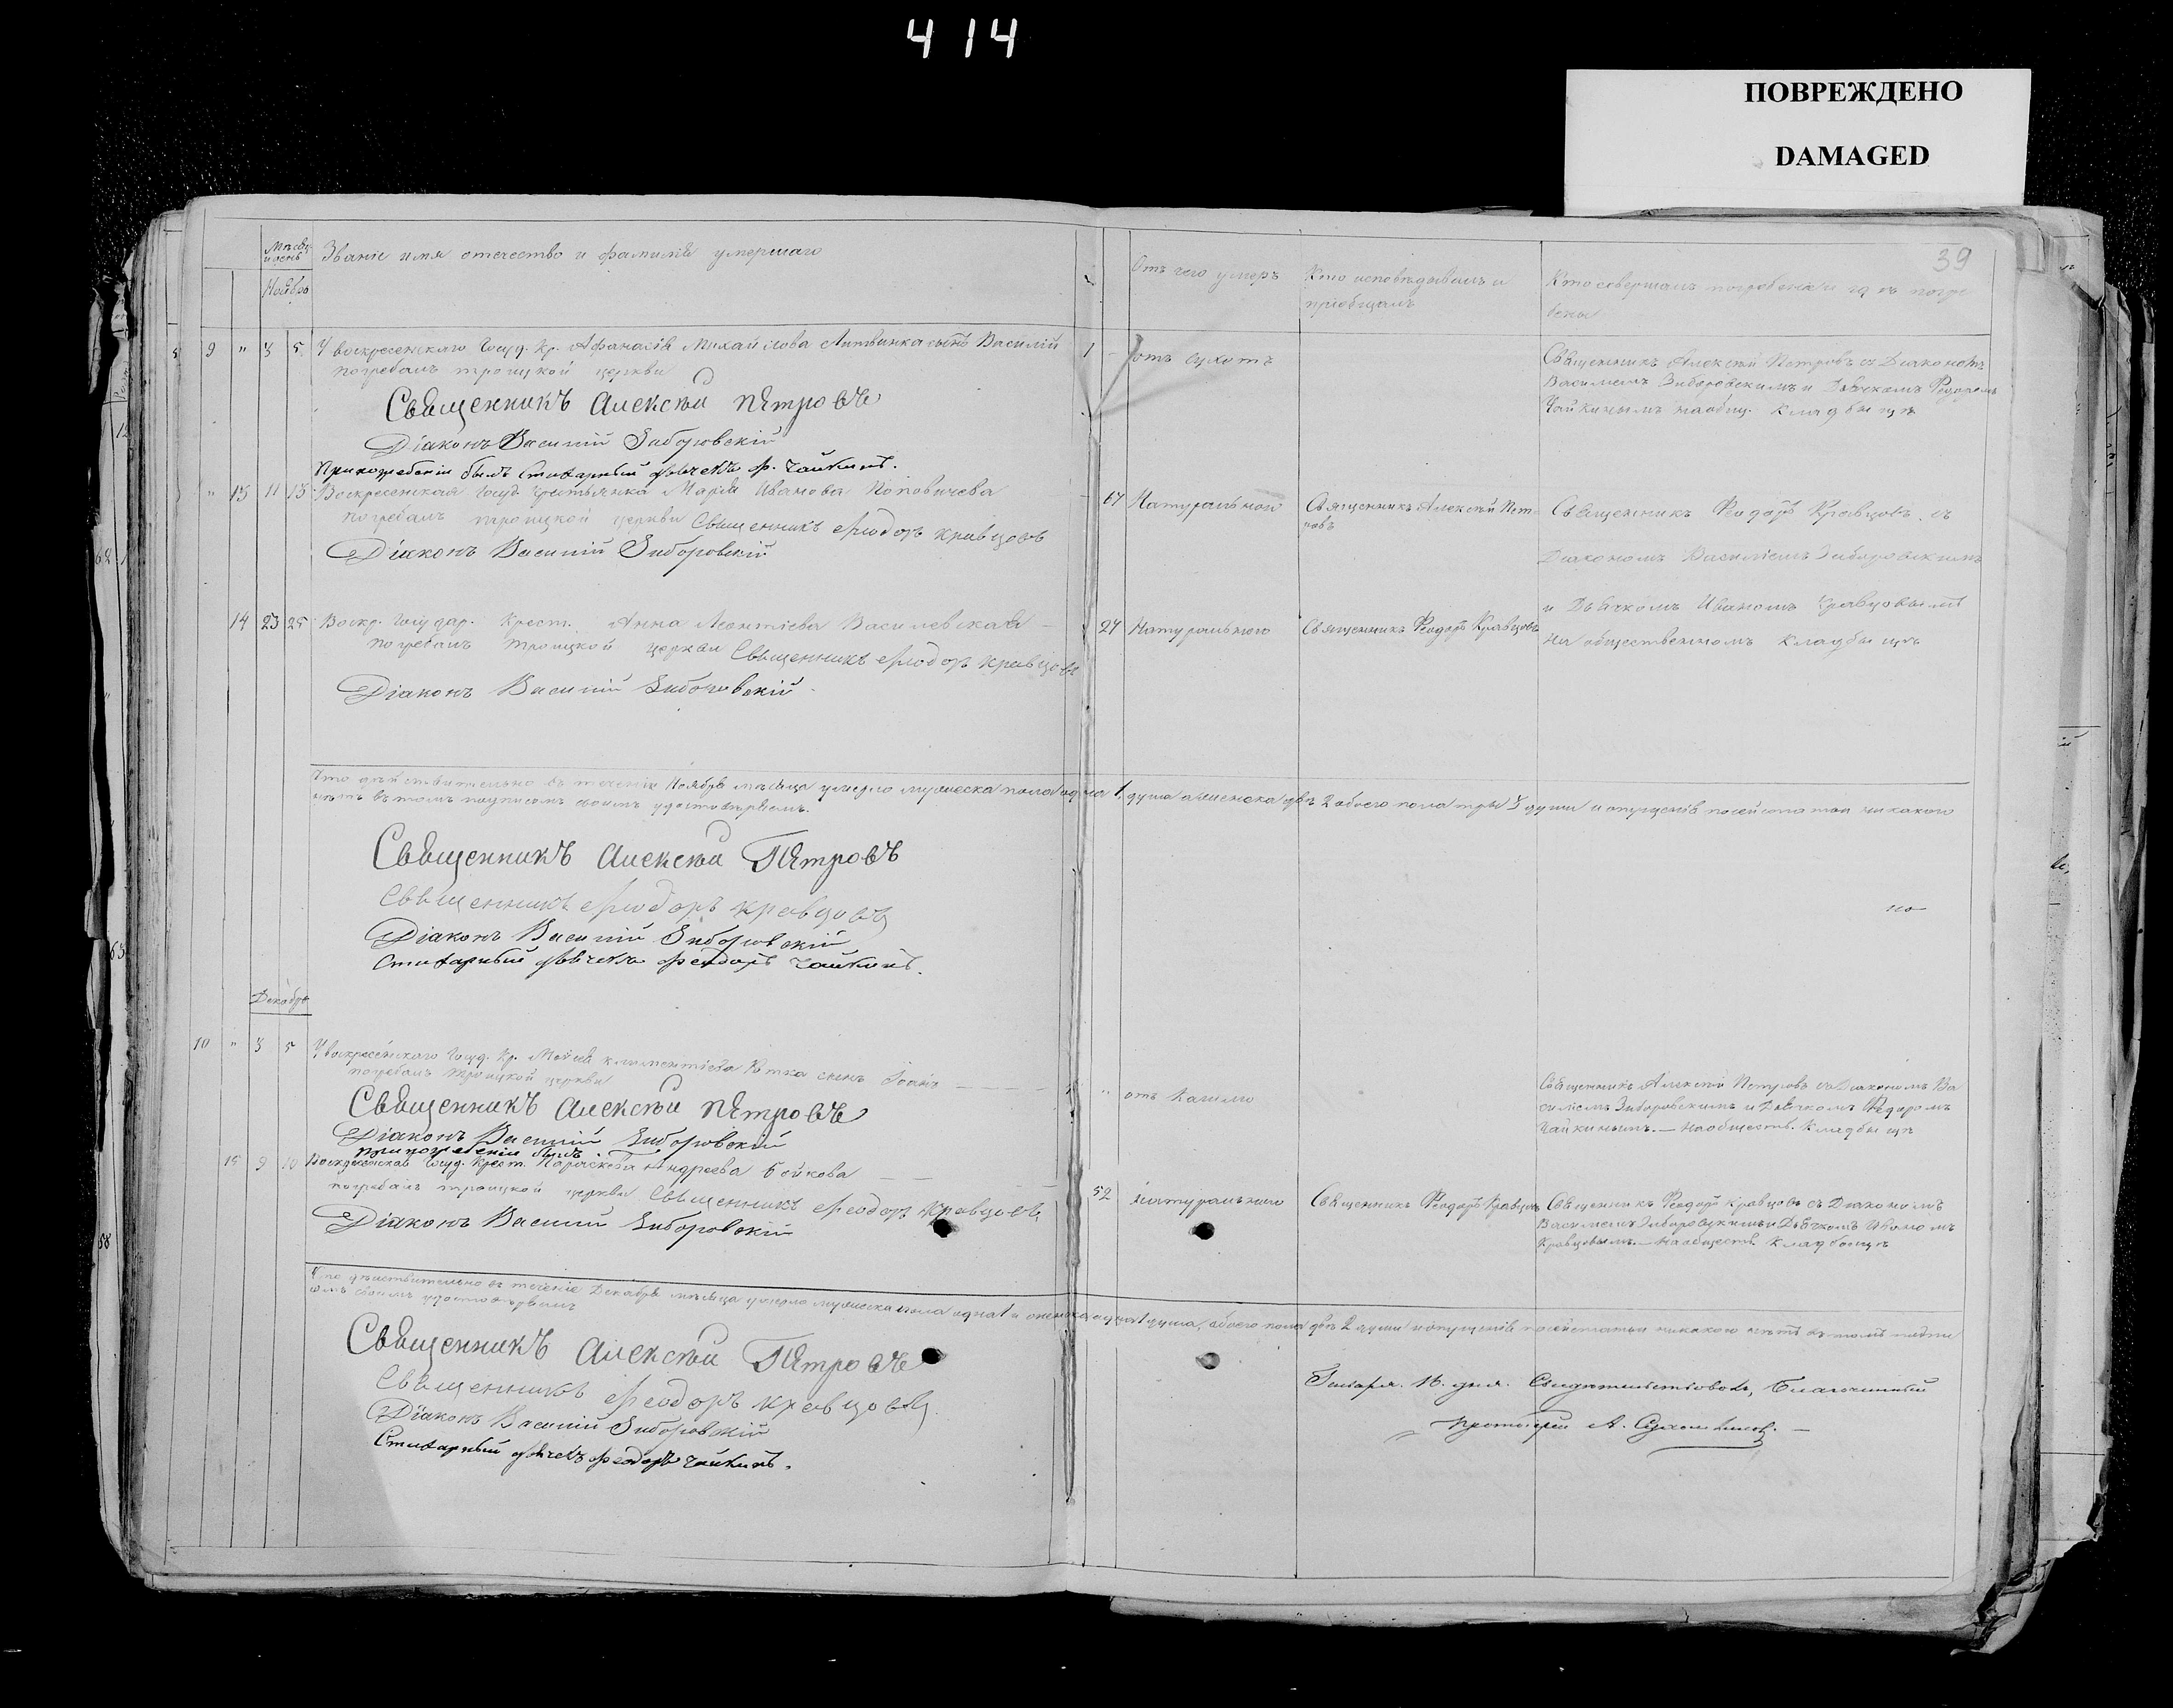 414
ПОВРЕЖДЕНО
DAMAGED
39
Званіе имя отечество и фамилія умершаго
Ноября
Отъ чего умеръ
Кто исповѣдывалъ и
пріобщалъ
Кто совершалъ погребеніе и гдѣ погре
бены
9 " 3 5 У воскресенскаго Госуд. Кр. Афанасія Михайлова Литвинка сынъ Василій 1
погребалъ троицкой церкви
Священникъ Алексѣй Петровъ
Діаконъ Василій Зиборовскій
При погребеніи былъ Стихарный дьячекъ Ф. Чайкинъ.
Священникъ Алексѣй Петровъ съ Діакономъ
Василіемъ Зиборовскимъ и Дьячкомъ Феодоромъ
Чайкинымъ на общ. кладбищѣ
" 13 11 13 Воскресенская Госуд. крестьянка Марія Иванова Поповичева
погребалъ троицкой церкви Священникъ Феодоръ Кравцовъ
Діаконъ Василій Зиборовскій
67 Натуральной
Священникъ Алексѣй Пет-
ровъ
Священникъ Феодоръ Кравцовъ съ
Діакономъ Василіемъ Зиборовскимъ
и Дьячкомъ Иваномъ Кравцовымъ
на общественномъ кладбищѣ
14 23 25 Воскр. Государ. Крест. Анна Леонтіева Василевская
погребалъ Троицкой церкви Священникъ Феодоръ Кравцовъ
Діаконъ Василій Зиборовскій
24 Натурально
Священникъ Феодоръ Кравцовъ
Что дѣйствительно въ теченіи Ноября мѣсяца умерло мужеска пола одна 1, душа а женска двѣ 2 обоего пола три 3 души и опущенія по сей статьи никакого
нѣтъ въ томъ подписомъ своимъ удостовѣряемъ.
Священникъ Алексѣй Петровъ
Священникъ Феодоръ Кравцовъ
Діаконъ Василій Зиборовскій
Стихарный дьячекъ Феодоръ Чайкинъ.
Декабрь
10 " 3 5 У воскресенскаго Госуд. Кр. сынъ Іоаннъ
погребалъ Троицкой церкви
Священникъ Алексѣй Петровъ
Діаконъ Василій Зиборовскій
при погребеніи былъ
отъ кашлю
Священникъ Алексѣй Петровъ съ Діакономъ Ва
силіемъ Зиборовскимъ и Дьячкомъ Феодоромъ
Чайкинымъ. — На обществ. кладбищѣ
15 9 10 Воскресенская Госуд. Крест. Параскева Андреева Бойкова
погребалъ троицкой церкви Священникъ Феодоръ Кравцовъ
Діаконъ Василій Зиборовскій
52 Натурально
Священникъ Феодоръ Кравцовъ
Священникъ Феодоръ Кравцовъ съ Діакономъ
Василіемъ Зиборовскимъ и Дьячкомъ Иваномъ
Кравцовымъ. — На обществ. кладбищѣ
Что дѣйствительно въ теченіе Декабря мѣсяца умерло мужеска пола одна 1 и женска одна 1 душа, обоего пола двѣ 2 души и опущенія по сей статьи никакого нѣтъ въ томъ подпи
сомъ своимъ удостовѣряемъ
Священникъ Алексѣй Петровъ
Священникъ Феодоръ Кравцовъ
Діаконъ Василій Зиборовскій
Стихарный дьячекъ Феодоръ Чайкинъ.
Генваря. 16. дня. Свидѣтельствовалъ, Благочинный
Протоіерей А.